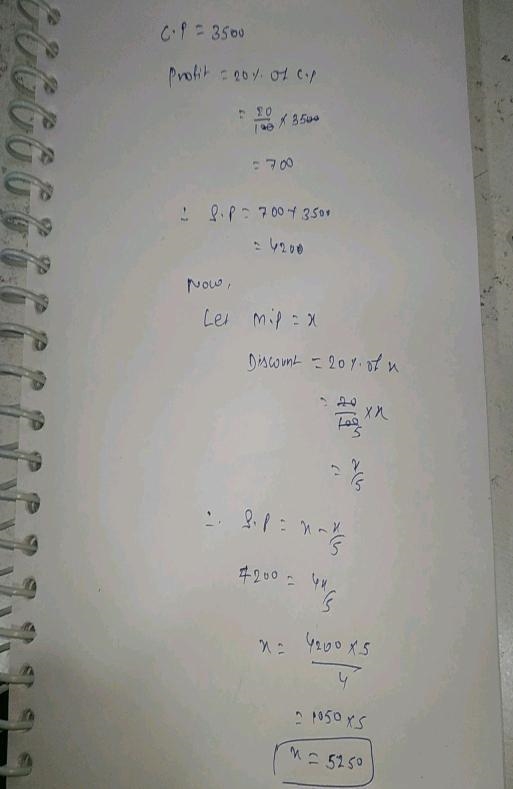 C.P = 3500
Profit = 20% of C.P
= 20/100 × 3500
= 700
∴ S.P = 700 + 3500
= 4200
Now,
Let M.P = x
Discount = 20% of x
= 20/100 5 × x
= x/5
∴ S.P = x - x/5
4200 = 4x/5
x = 4200 × 5 / 4
= 1050 × 5
x = 5250